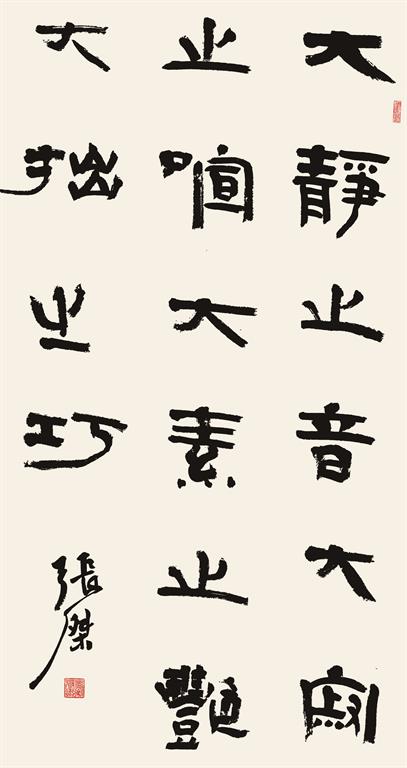 大靜之音大寂
之喧大素之艷
大拙之巧
張傑